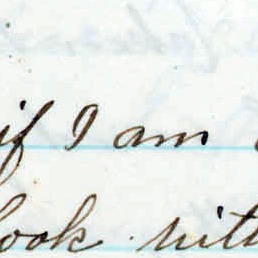 if I am
look with